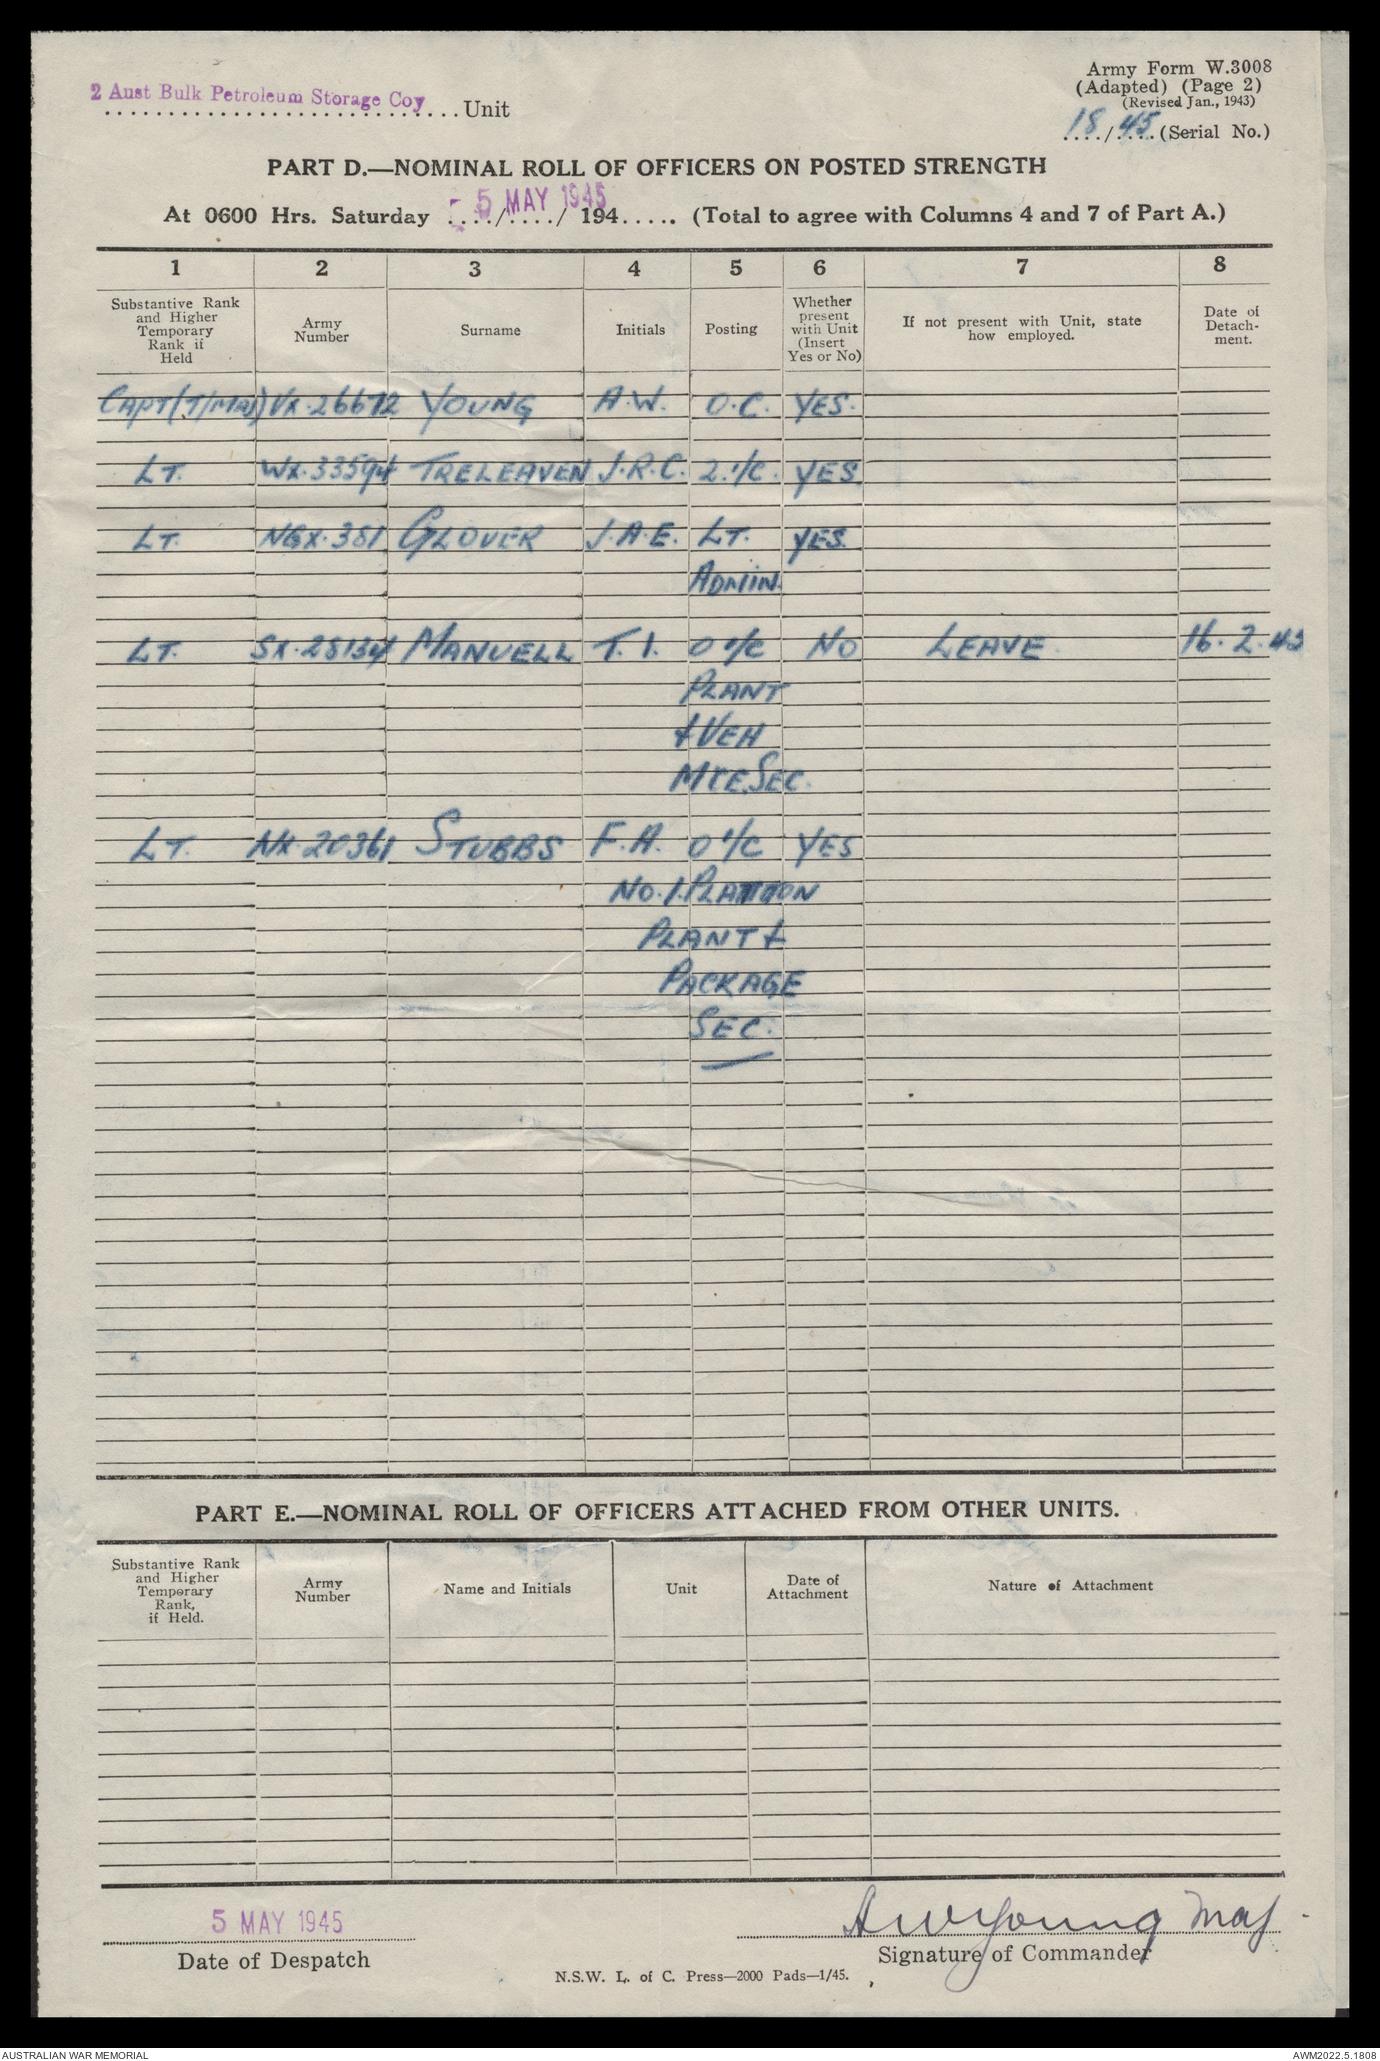 2 Aust Bulk Petroleum Storage Coy Unit
Army Form W.3008
(Adapted) (Page 2)
(Revised Jan., 1943)
18/45 (Serial No.)
PART D.—NOMINAL ROLL OF OFFICERS ON POSTED STRENGTH
At 0600 Hrs. Saturday - 5 MAY 1945 ..../..../ 194..... (Total to agree with Columns 4 and 7 of Part A.)
1 2 3 4 5 6 7 8
Substantive Rank
and Higher
Temporary
Rank if
Held
Army
Number
Surname
Initials
Posting
Whether
present
with Unit
(Insert
Yes or No)
If not present with Unit, state
how employed.
Date of
Detach-
ment.
CAPT (T/MAJ) VX.26672 YOUNG A.W. O.C. YES.
LT. WX.33594 TRELEAVEN J.R.C. 2.I/C. YES
LT. NGX.381 GLOVER J.A.E. LT. YES.
ADMIN.
LT. SX.28134 MANUELL T.I. O I/C NO LEAVE. 16.2.45
PLANT
+ VEH
MTE. SEC.
LT. NX.20361 STUBBS F.A. O I/C YES
NO.1. PLATOON
PLANT +
PACKAGE
SEC.
PART E.—NOMINAL ROLL OF OFFICERS ATTACHED FROM OTHER UNITS.
Substantive Rank
and Higher
Temporary
Rank,
if Held.
Army
Number
Name and Initials
Unit
Date of
Attachment
Nature of Attachment
5 MAY 1945
Date of Despatch
A W Young Maj.
Signature of Commander
N.S.W. L. of C. Press—2000 Pads—1/45.
AUSTRALIAN WAR MEMORIAL
AWM2022.5.1808